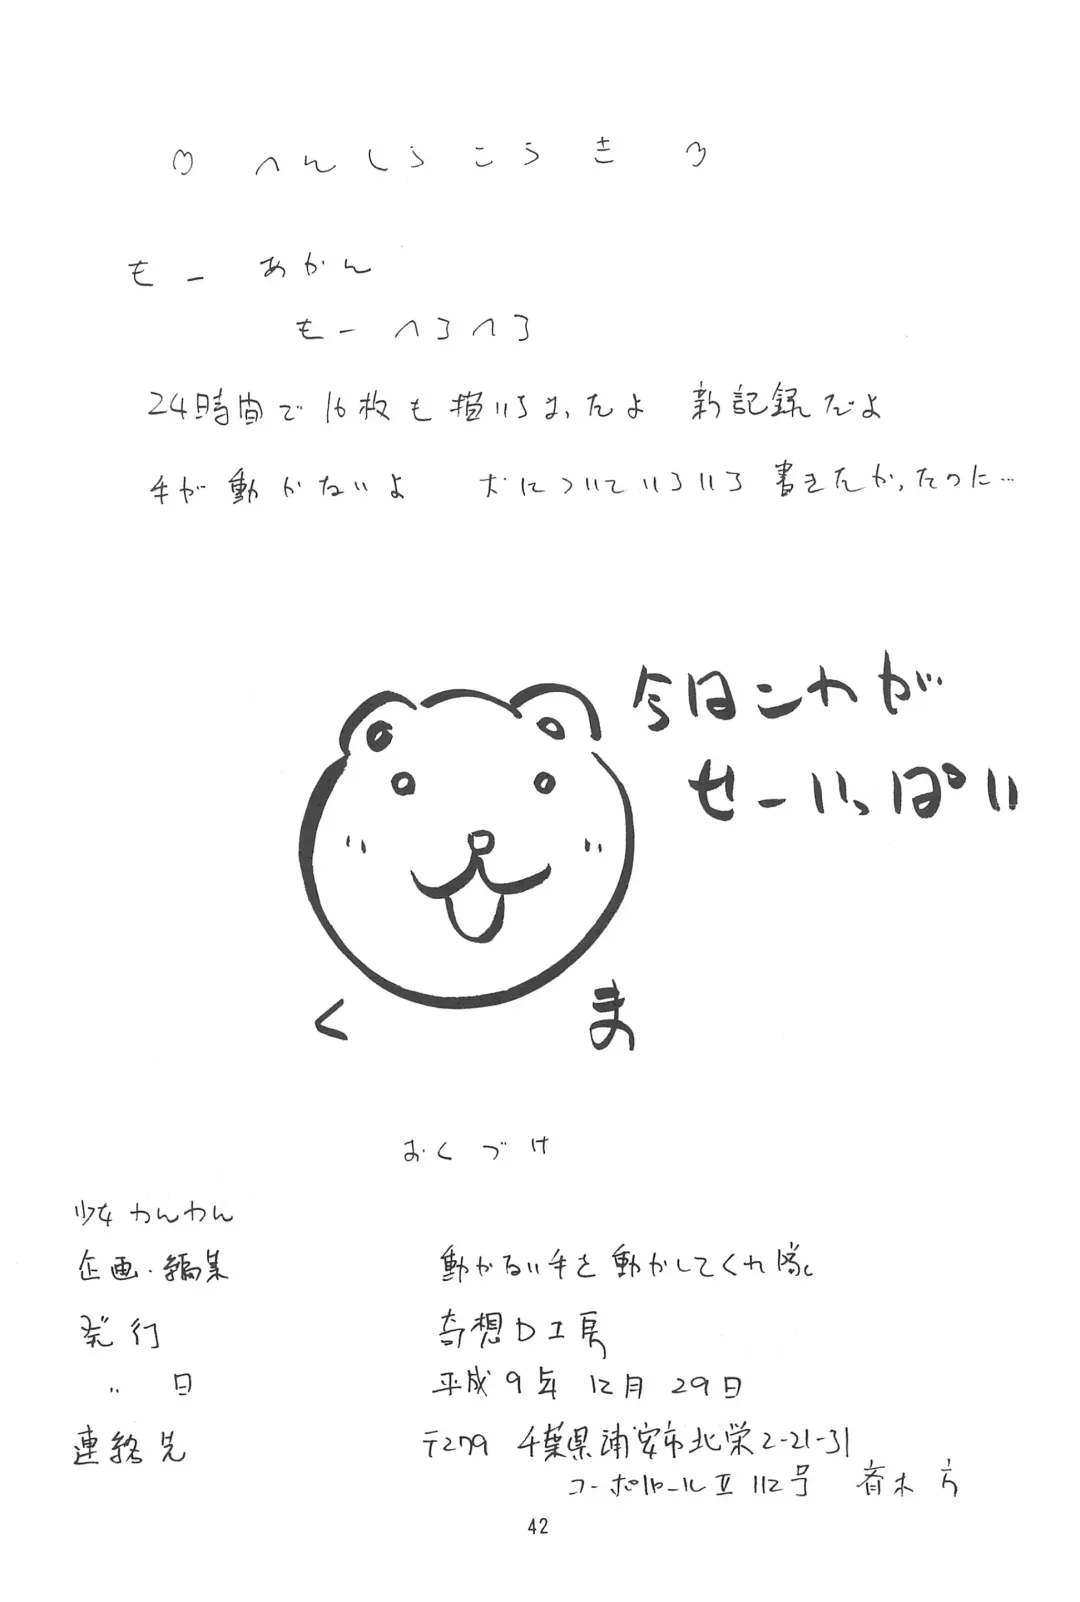 ♡ へんしうこうき ♡
もー あかん
もー へろへろ
24時間で16枚も描いちまったよ 新記録だよ
手が動かないよ 犬についていろいろ書きたかったのに…
今日はこれが
せーいっぱい
くま
おくづけ
少女わんわん
企画・編集 動かない手を動かしてくれ隊
発行 奇想D工房
〃 日 平成9年12月29日
連絡先 〒279 千葉県浦安市北栄2-21-31
II 112号 方
42